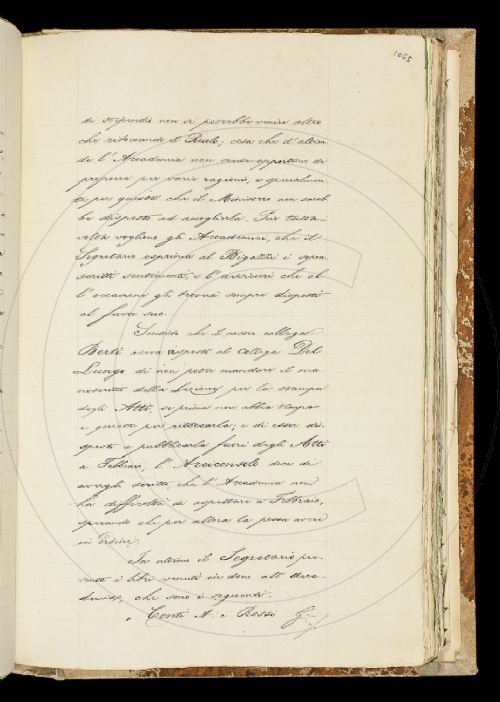 1055
di stipendio non si potrebbe venire altro
che ritoccando il Ruolo; cosa che d'altron
de l'Accademia non crede opportuno di
proporre per varie ragioni, e specialmen
te per questa che il Ministero non sareb
be disposto ad accoglierla. Pur tutta-
volta vogliono gli Accademici, che il
Segretario esprima al Bigazzi i sopra
scritti sentimenti, e l'assicuri che al
l'occasione gli troverà sempre disposti
al favor suo.
Sentito che il nostro collega
Berti aveva risposto al Collega Del
Lungo di non poter mandare il ma
noscritto della Lezione per la stampa
degli Atti, se prima non abbia tempo
e quiete per ritoccarla; e di esser di-
sposto a pubblicarla fuori degli Atti
a Febbraio; l'Arciconsolo dice di
avergli scritto che l'Accademia non
ha difficoltà di aspettare a Febbraio,
sperando che per allora la possa avere
in ordine.
In ultimo il Segretario pre-
senta i libri venuti in dono all'Acca-
demia, che sono i seguenti:
Conti A. e Rossi G.